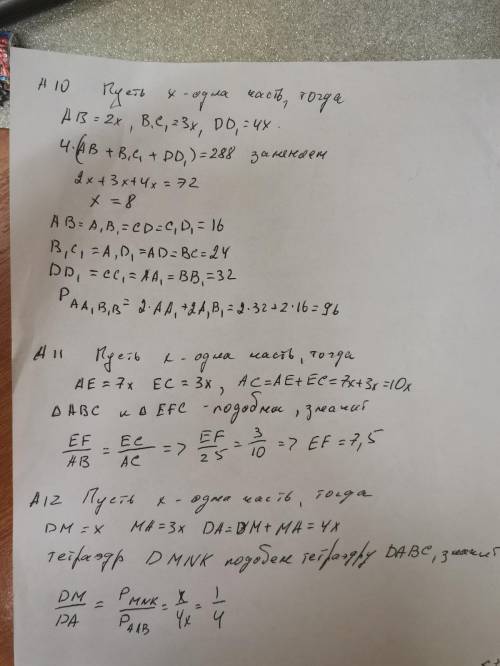 А10 Пусть x - одна часть, тогда
AB = 2x, B₁C₁ = 3x, DD₁ = 4x.
4·(AB + B₁C₁ + DD₁) = 288
2x + 3x + 4x = 72
x = 8
AB = A₁B₁ = CD = C₁D₁ = 16
B₁C₁ = A₁D₁ = AD = BC = 24
DD₁ = CC₁ = AA₁ = BB₁ = 32
P AA₁B₁B = 2·AA₁ + 2A₁B₁ = 2·32 + 2·16 = 96
А11 Пусть x - одна часть, тогда
AE = 7x EC = 3x, AC = AE + EC = 7x + 3x = 10x
Δ ABC и Δ EFC - подобны, значит
EF/AB = EC/AC => EF/25 = 3/10 => EF = 7,5
А12 Пусть x - одна часть, тогда
DM = x MA = 3x DA = DM + MA = 4x
тетраэдр DMNK подобен тетраэдру DABC, значит
DM/DA = P MNK/P AAB = x/4x = 1/4